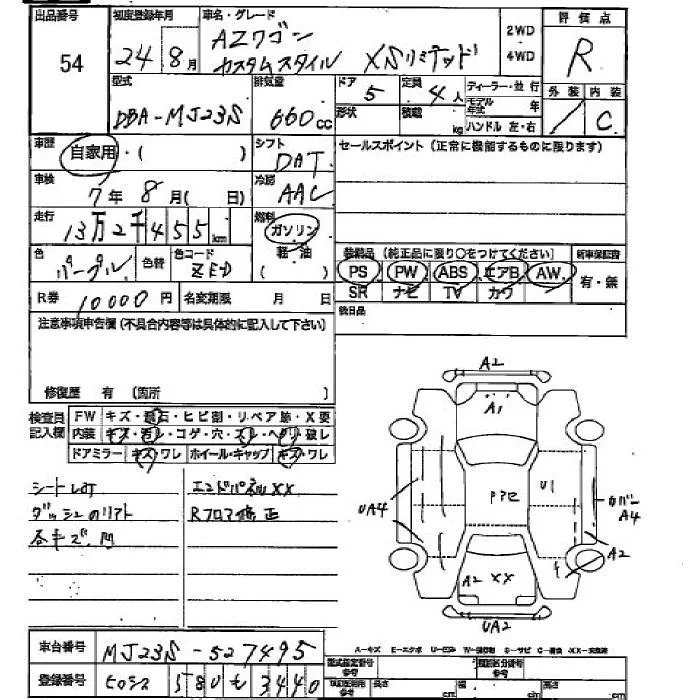 出品番号
54
初度登録年月
24年8月
車名・グレード
AZワゴン
カスタムスタイル XSリミテッド
2WD
・
4WD
評価点
R
型式
DBA-MJ23S
排気量
660cc
ドア
5
定員
4人
形状
積載
kg
ディーラー・並行
モデル年式 年
ハンドル 左・右
外装 内装
C
車歴
自家用・( )
シフト
DAT
車検
7年8月( 日)
冷房
AAC
走行
13万2千455km
燃料
ガソリン
軽・油
( )
色
パープル
色替
色コード
ZED
R券 10000円
名変期限 月 日
セールスポイント(正常に機能するものに限ります)
装備品(純正品に限り○をつけてください)
PS PW ABS エアB AW
SR ナビ TV カワ
新車保証書
有・無
後日品
注意事項申告欄(不具合内容等は具体的に記入して下さい)
修復歴 有 〔箇所 〕
検査員記入欄
FW キズ・飛石・ヒビ割・リペア跡・X要
内装 キズ・汚れ・コゲ・穴・スレ・ヘタリ・破レ
ドアミラー キズ・ワレ ホイール・キャップ キズ・ワレ
シートLOT
エンドパネルXX
ダッシュのリアト
Rフロア修正
各キズ、凹
A2
A1
UA4
U1
カバー
A4
A2
A2 XX
UA2
車台番号
MJ23S-527495
A-キズ E-エクボ U-凹み W-補修跡 S-サビ C-腐食 XX-交換済
登録番号
580 も 3440
型式指定番号
参考
類別区分番号
参考
長さ cm
幅 cm
高さ cm